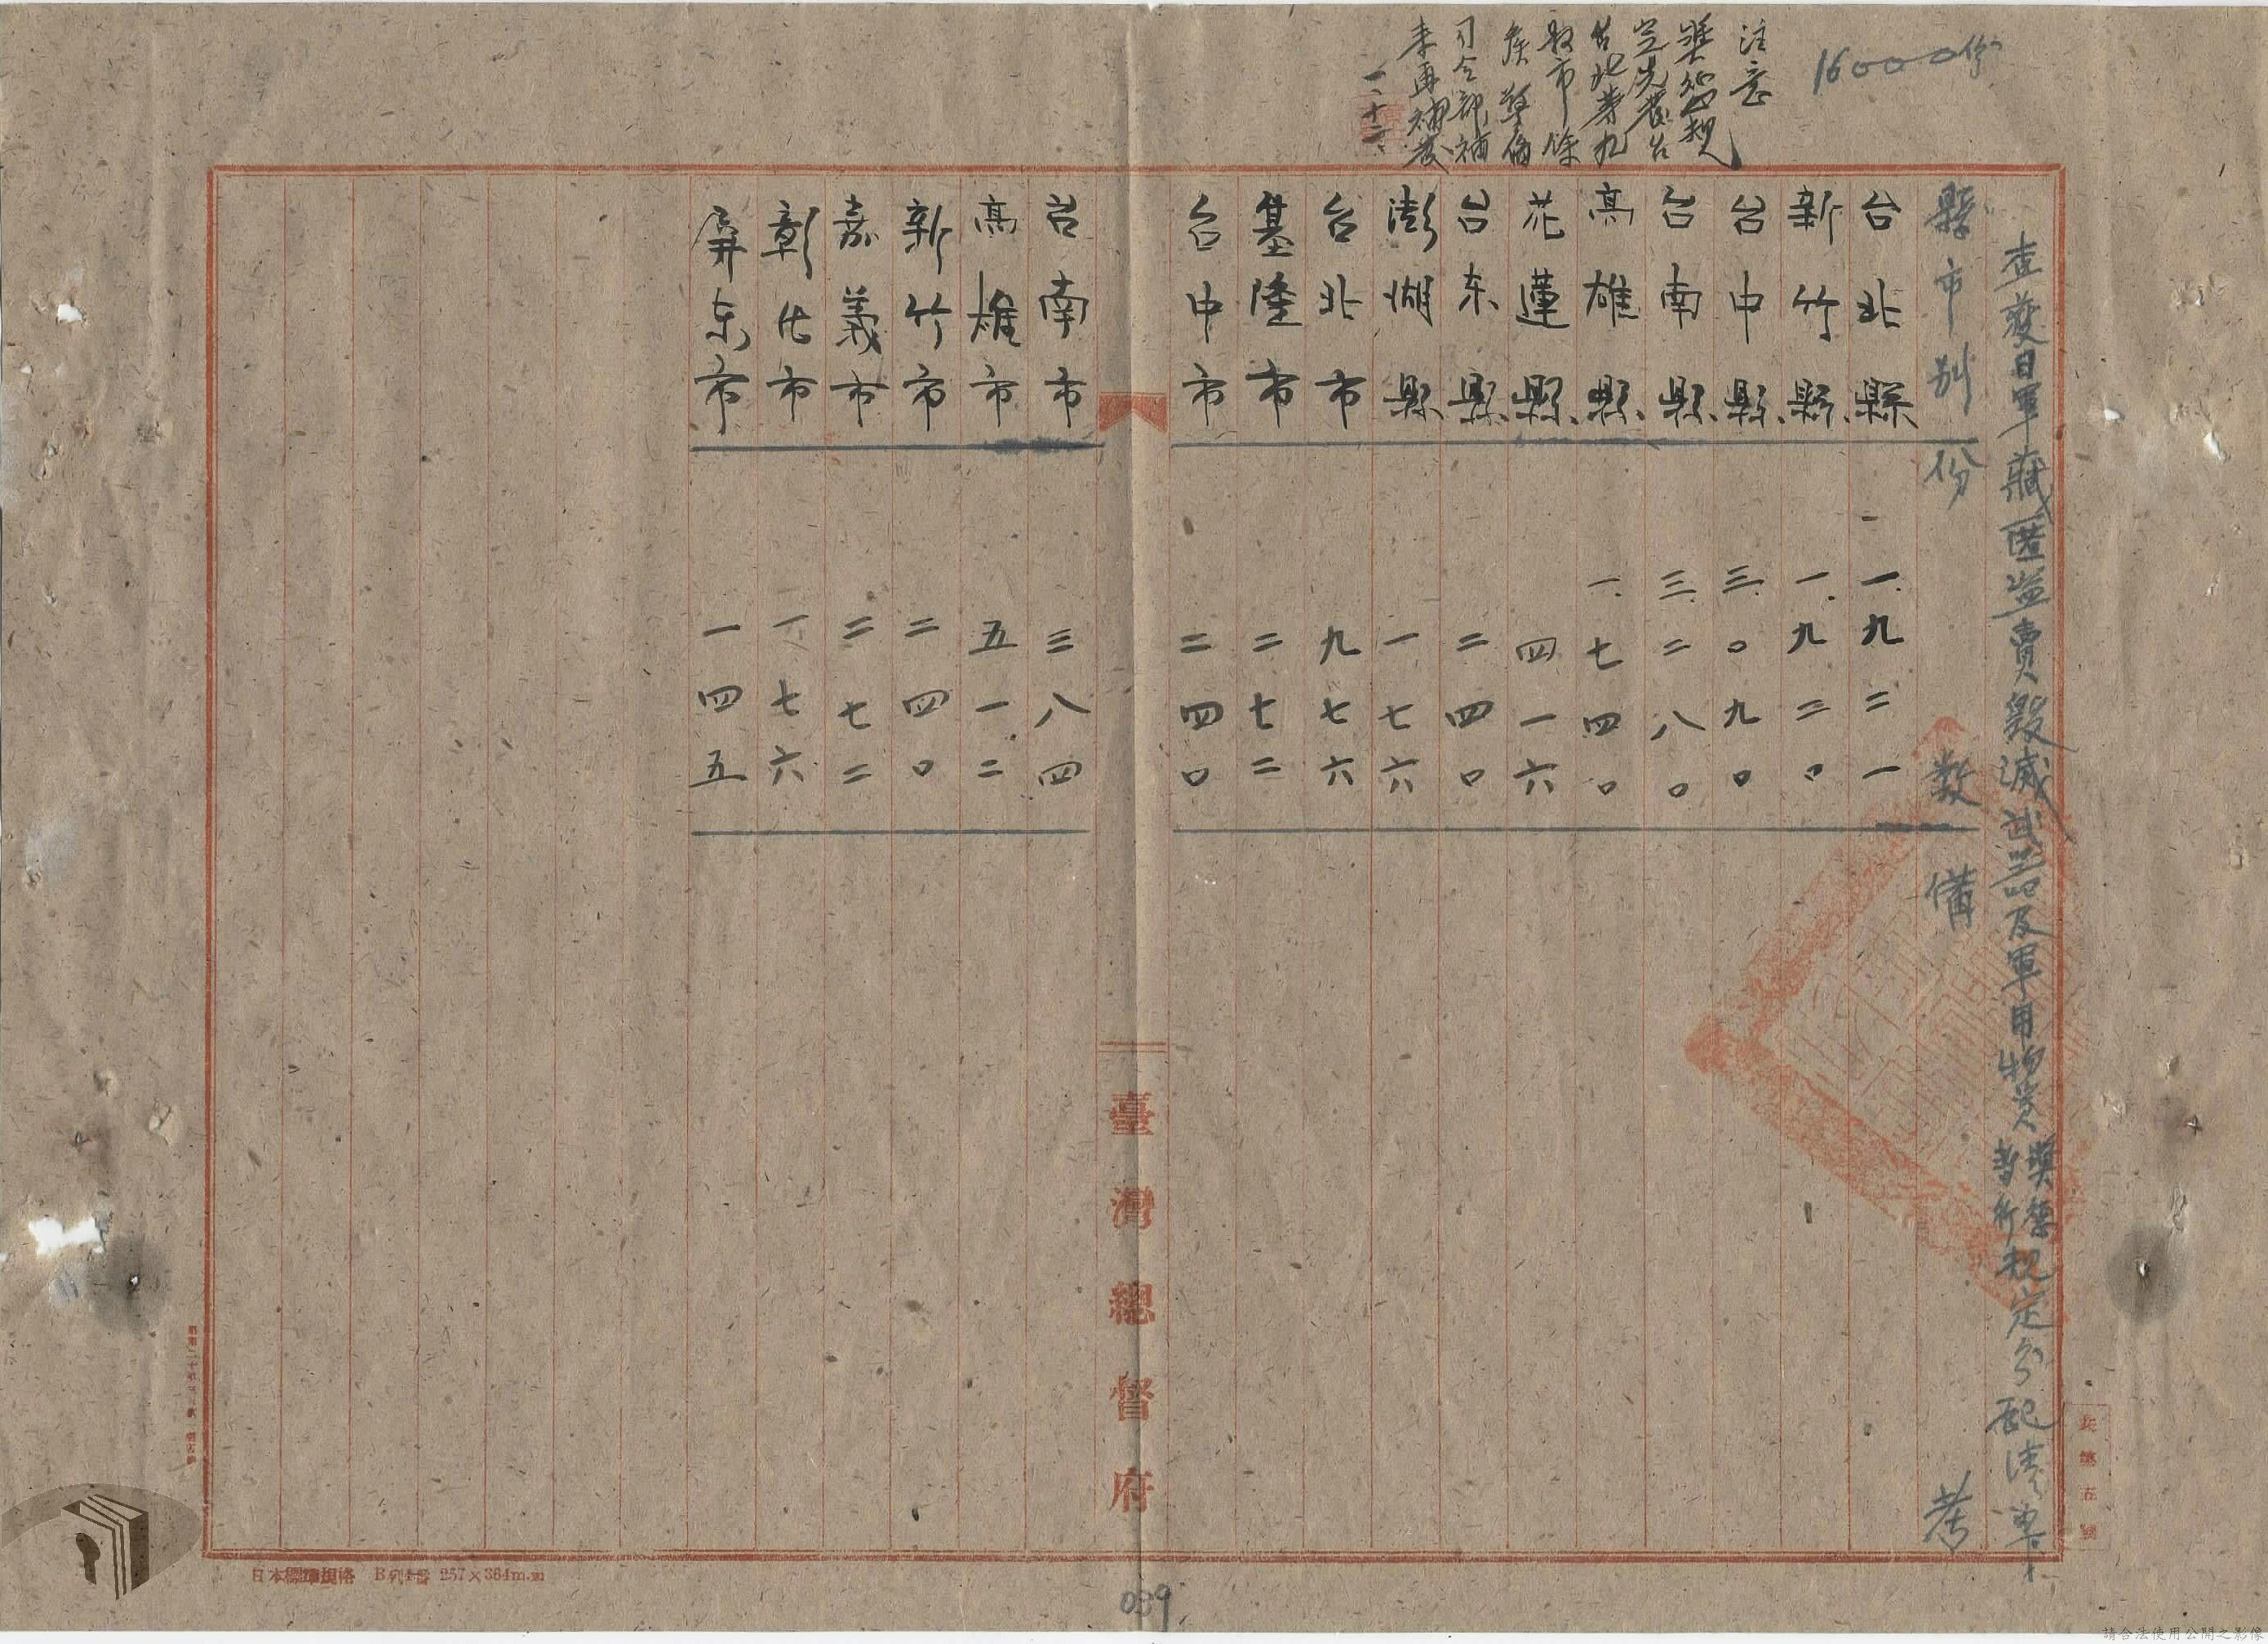 16000份
注意
獎懲規
定先發台
北
市除
俟警備
司令部補
來再補發
一、十六、
查獲日軍藏匿盜賣毀滅武器及軍用物資獎懲暫行規定分配清單
縣市別 份數 備考
台北縣 一.九二一
新竹縣 一.九二〇
台中縣 三.〇九〇
台南縣 三.二八〇
高雄縣 一.七四〇
花蓮縣 四一六
台东縣 二四〇
澎湖縣 一七六
台北市 九七六
基隆市 二七二
台中市 二四〇
臺灣總督府
台南市 三八四
高雄市 五一二
新竹市 二四〇
嘉義市 二七二
彰化市 一七六
屏东市 一四五
日本標準規格 B列4番 257×364m.m
039
請合法使用公開之影像